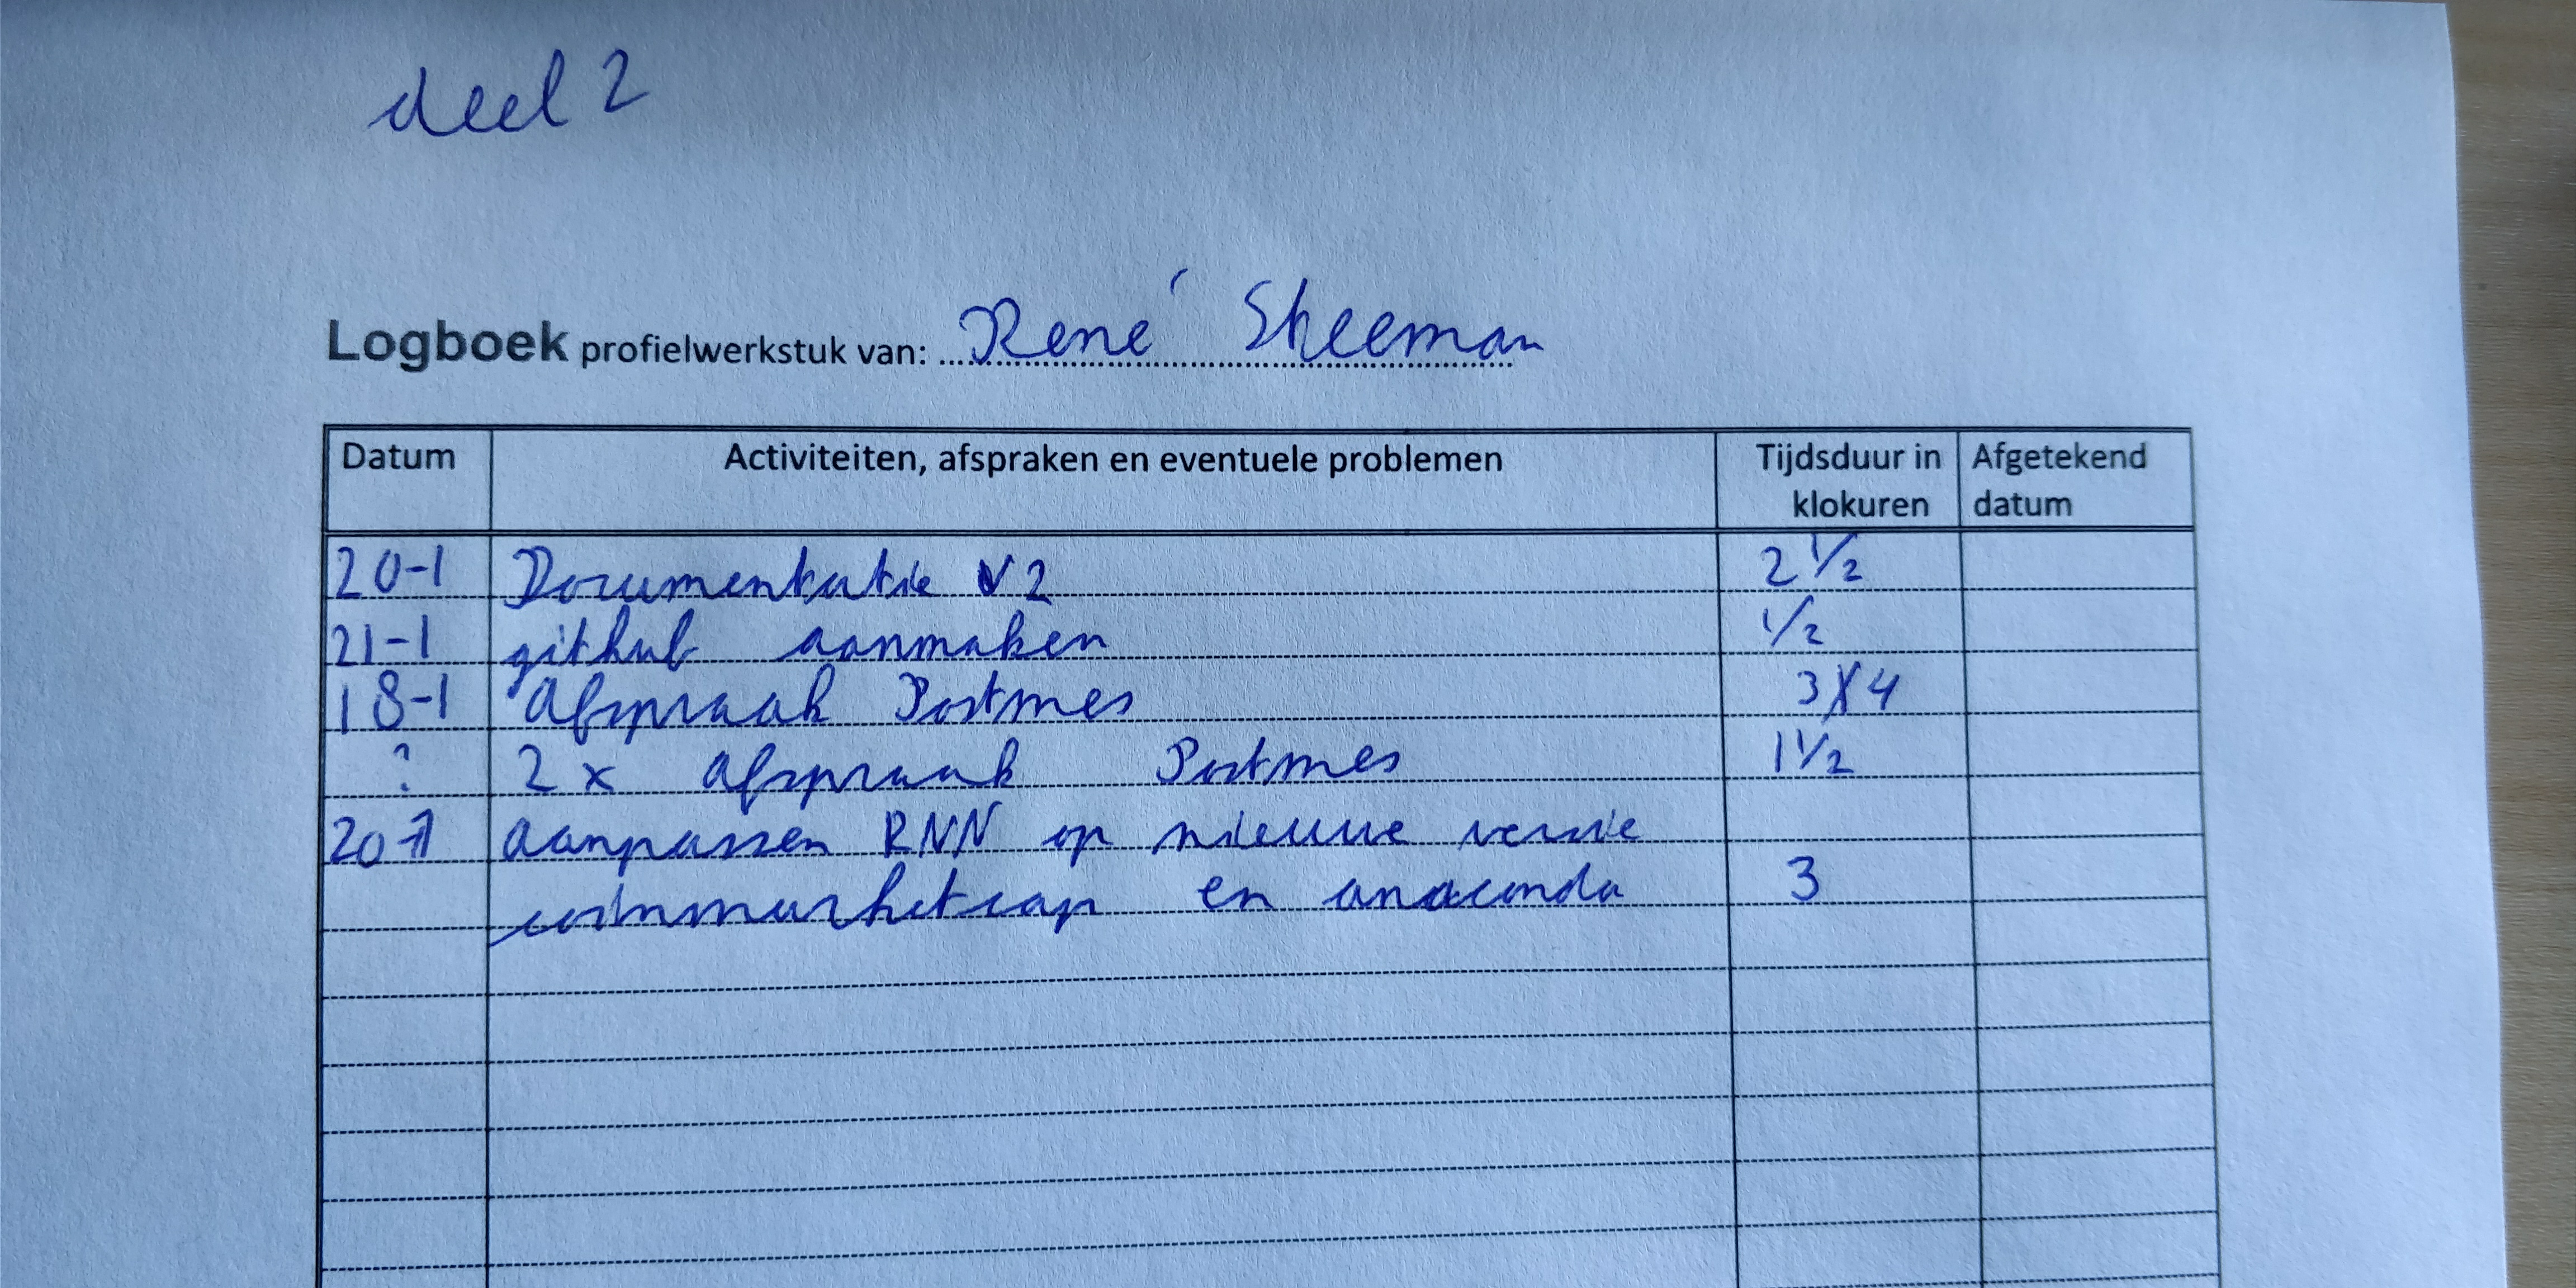 deel 2
Logboek profielwerkstuk van: René Skeeman
Datum Activiteiten, afspraken en eventuele problemen Tijdsduur in klokuren Afgetekend datum
20-1 Documentatie V2 2 1/2
21-1 github aanmaken 1/2
18-1 Afspraak Postmes 3/4
? 2 x afspraak Postmes 1 1/2
20-1 aanpassen RNN op nieuwe versie
coinmarketcap en anaconda 3